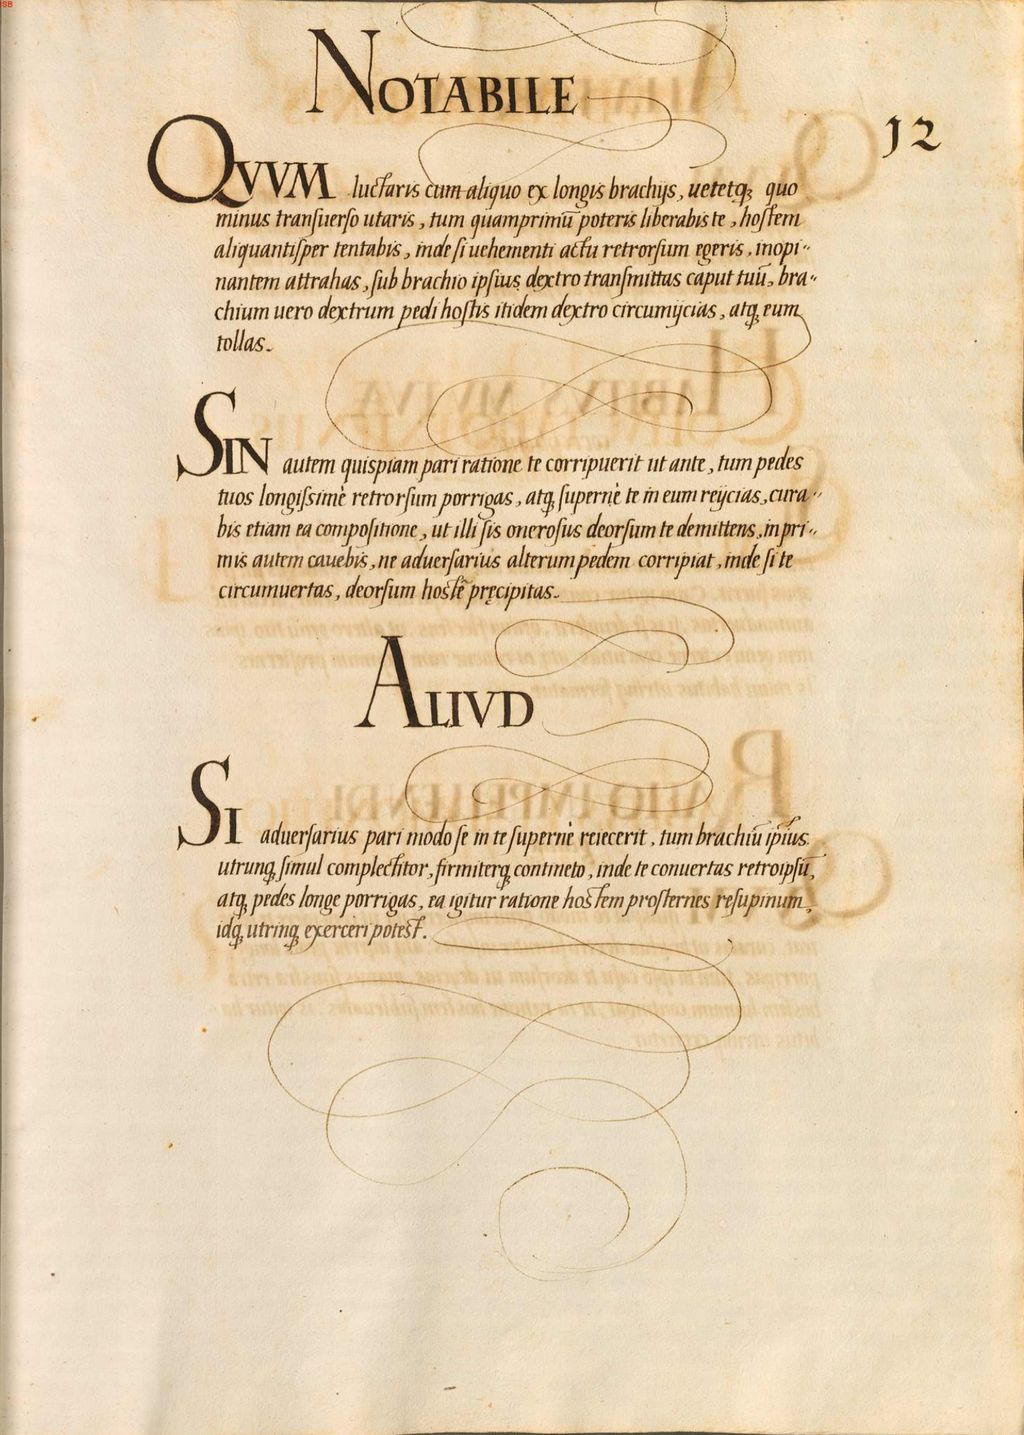 NOTABILE
12
QVVM luctaris cum aliquo ex longis brachijs, uetetq; quo
minus transuerso utaris, tum quamprimū poteris liberabis te, hostem
aliquantisper tentabis, inde si uehementi actu retrorsum egeris, inopi-
nantem attrahas, sub brachio ipsius dextro transmittas caput tuū, bra-
chium uero dextrum pedi hostis itidem dextro circumijcias, atq, eum
tollas.
SIN autem quispiam pari ratione te corripuerit ut ante, tum pedes
tuos longissimè retrorsum porrigas, atq, supernè te in eum reijcias, cura-
bis etiam ea compositione, ut illi sis onerosus deorsum te demittens, in pri-
mis autem cauebis, ne aduersarius alterum pedem corripiat, inde si te
circumuertas, deorsum hostē pręcipitas.
ALIVD
SI aduersarius pari modo se in te supernè reiecerit, tum brachiū ipsius
utrunq, simul complectitor, firmiterq, contineto, inde te conuertas retro ipsū,
atq, pedes longe porrigas, ea igitur ratione hostem prosternes resupinum,
idq, utrinq, exerceri potest.